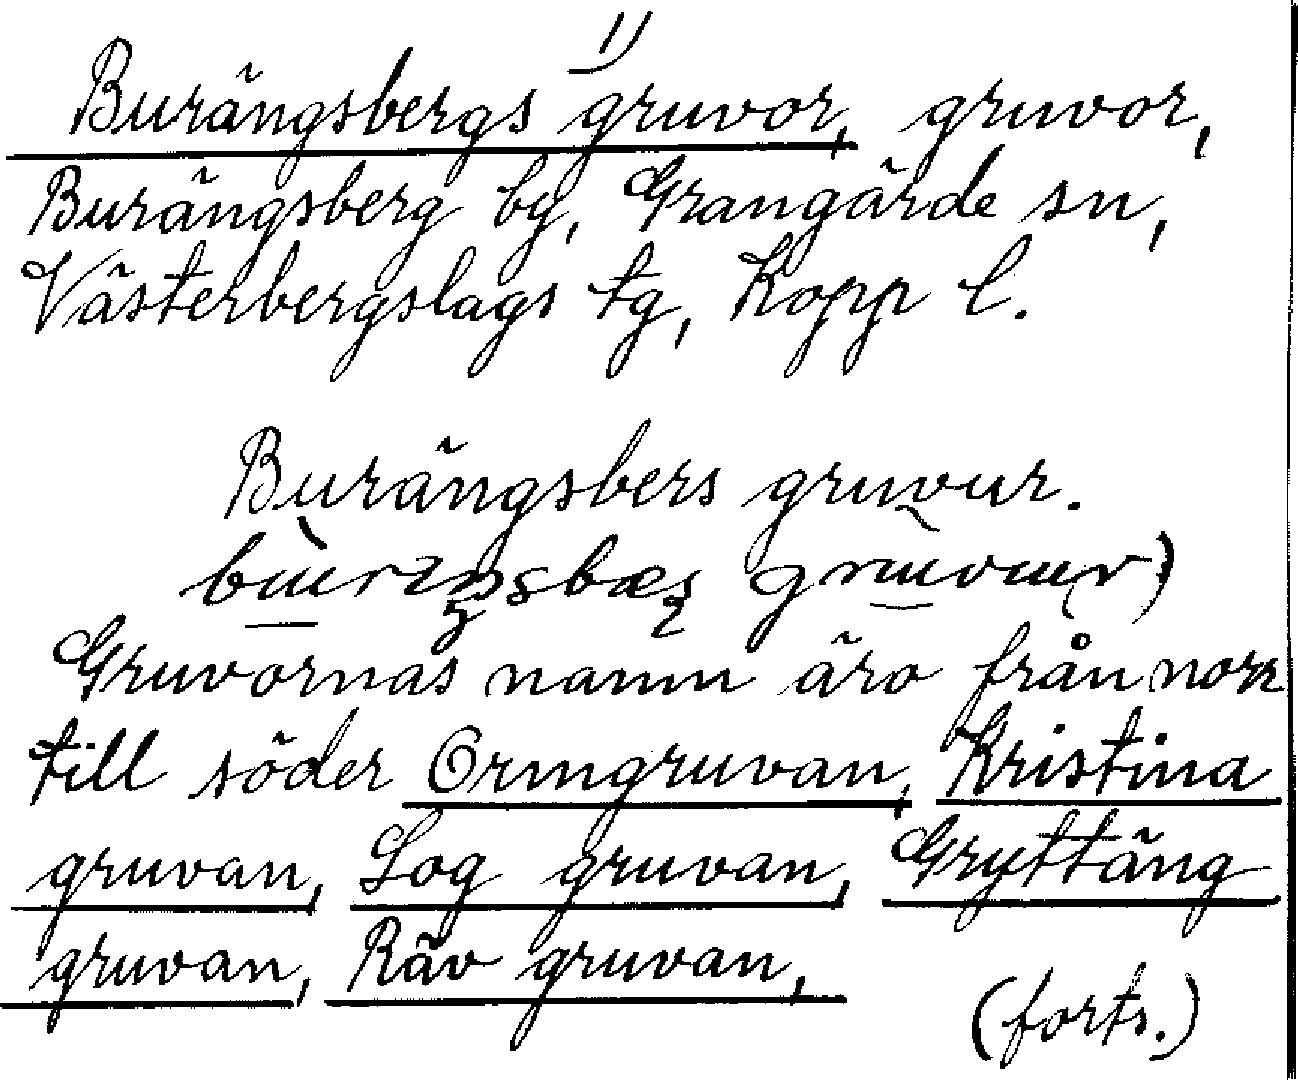 1)
Burängsbergs gruvor, gruvor,
Burängsberg by, Grangärde sn,
Västerbergslags tg, Kopp l.
Burängsbers gruvur.
Gruvornas namn äro från norr
till söder Ormgruvan, Kristina
gruvan, Log gruvan, Gryttäng
gruvan, Räv gruvan,
(forts.)